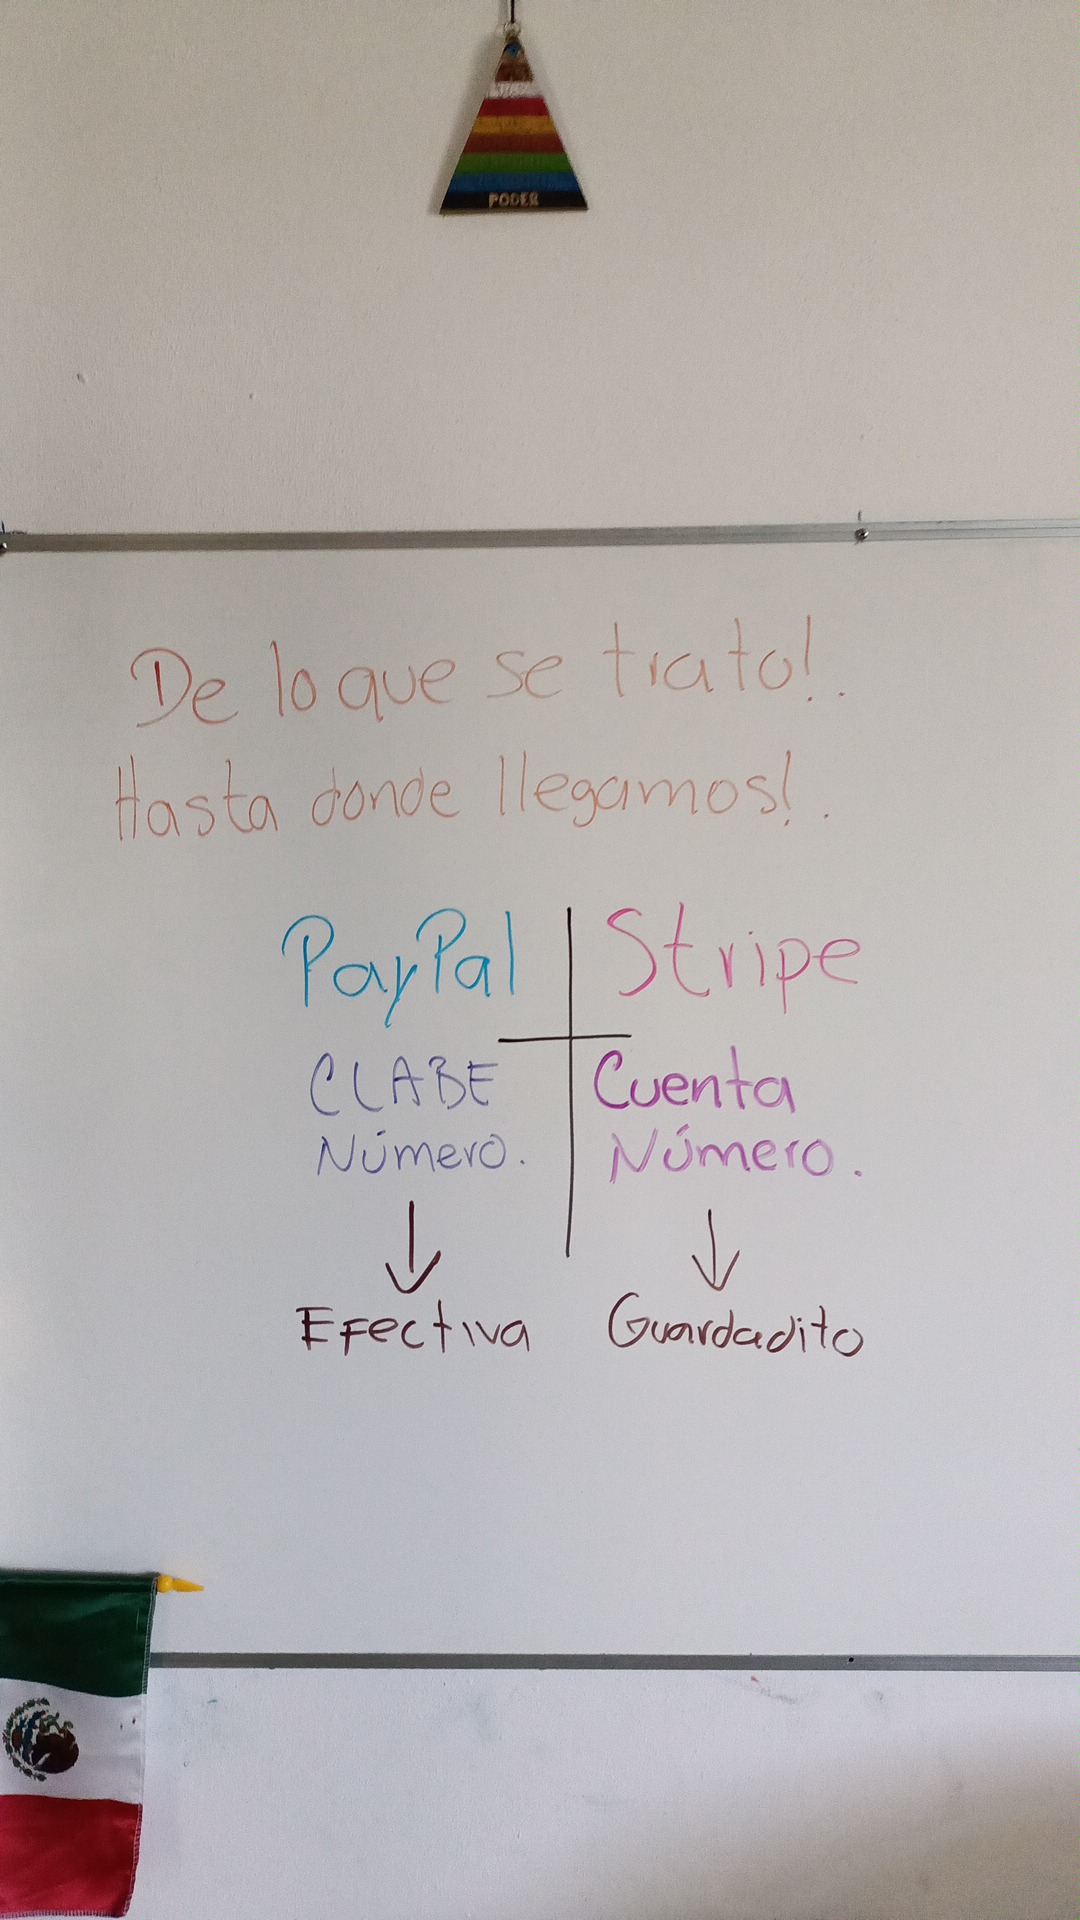 PODER
De lo que se trato!.
Hasta donde llegamos!.
PayPal Stripe
CLABE Cuenta
Número. Número.
Efectiva Guardadito